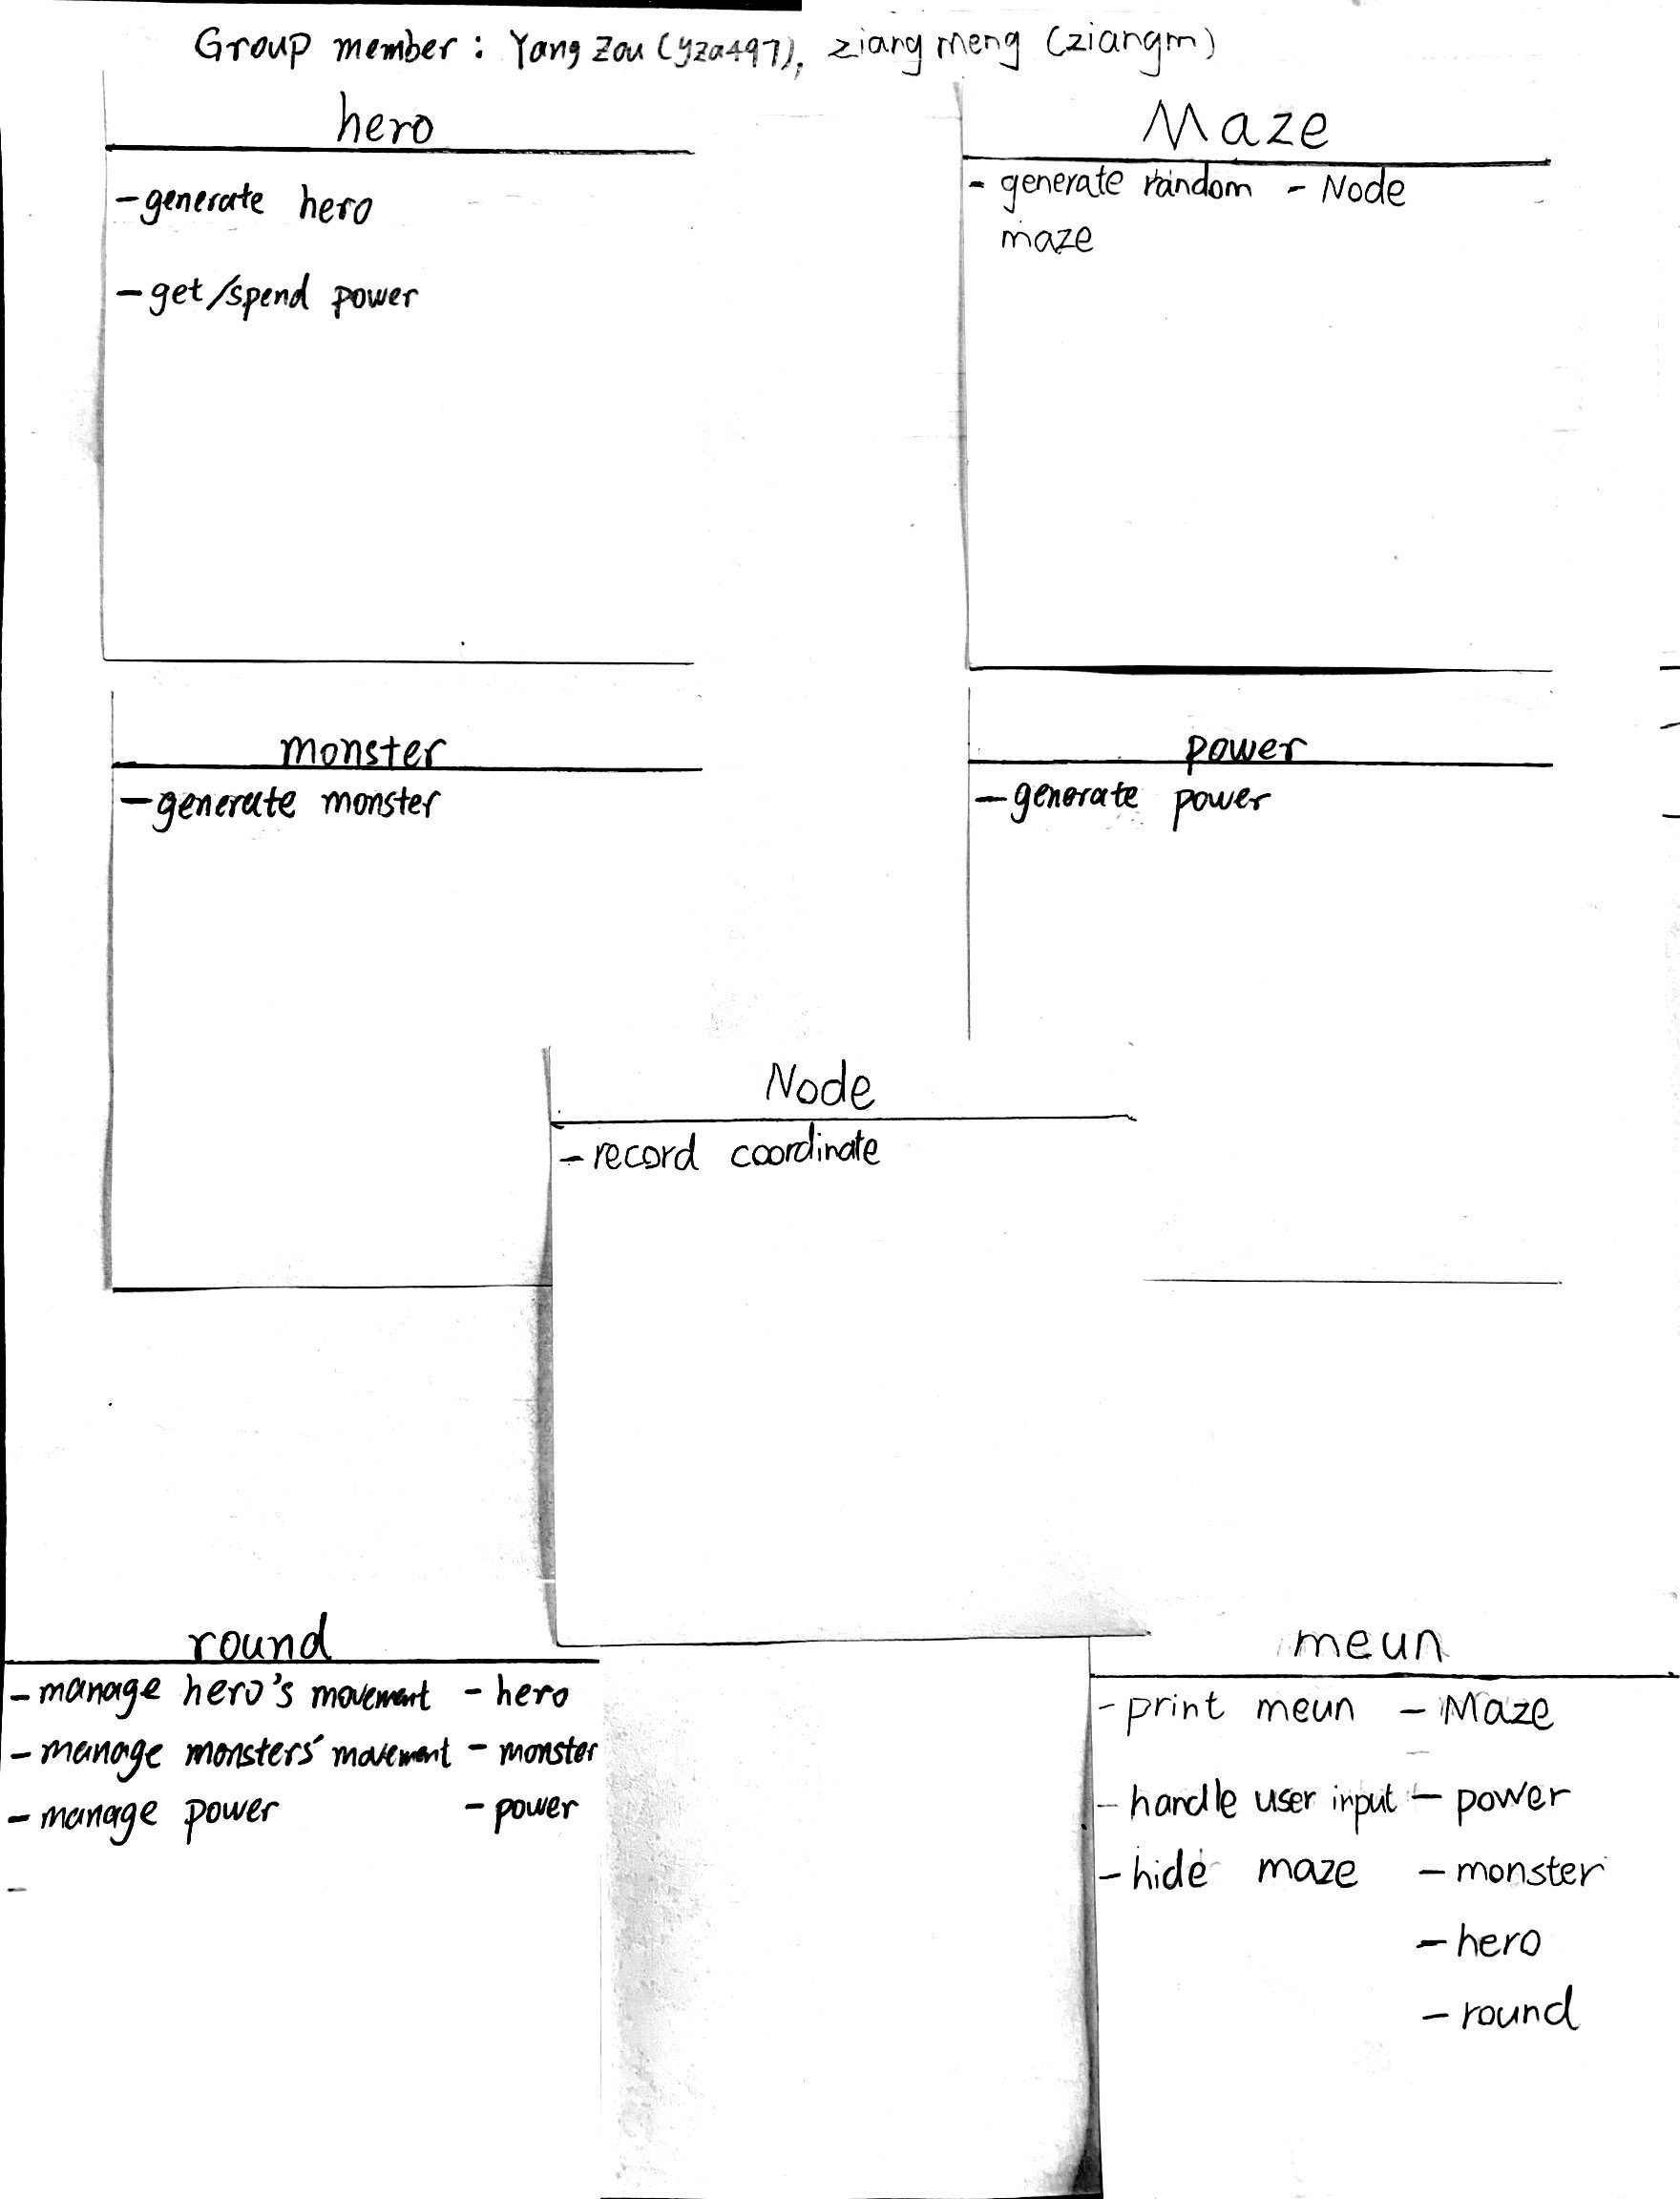 Group member : Yang Zou (yza497), ziang meng (ziangm)
hero
- generate hero
- get/spend power
Maze
- generate random - Node
maze
monster
- generate monster
power
- generate power
Node
- record coordinate
round
- manage hero's movement - hero
- manage monsters' movement - monster
- manage power - power
-
meun
- print meun - Maze
- handle user input - power
- hide maze - monster
- hero
- round